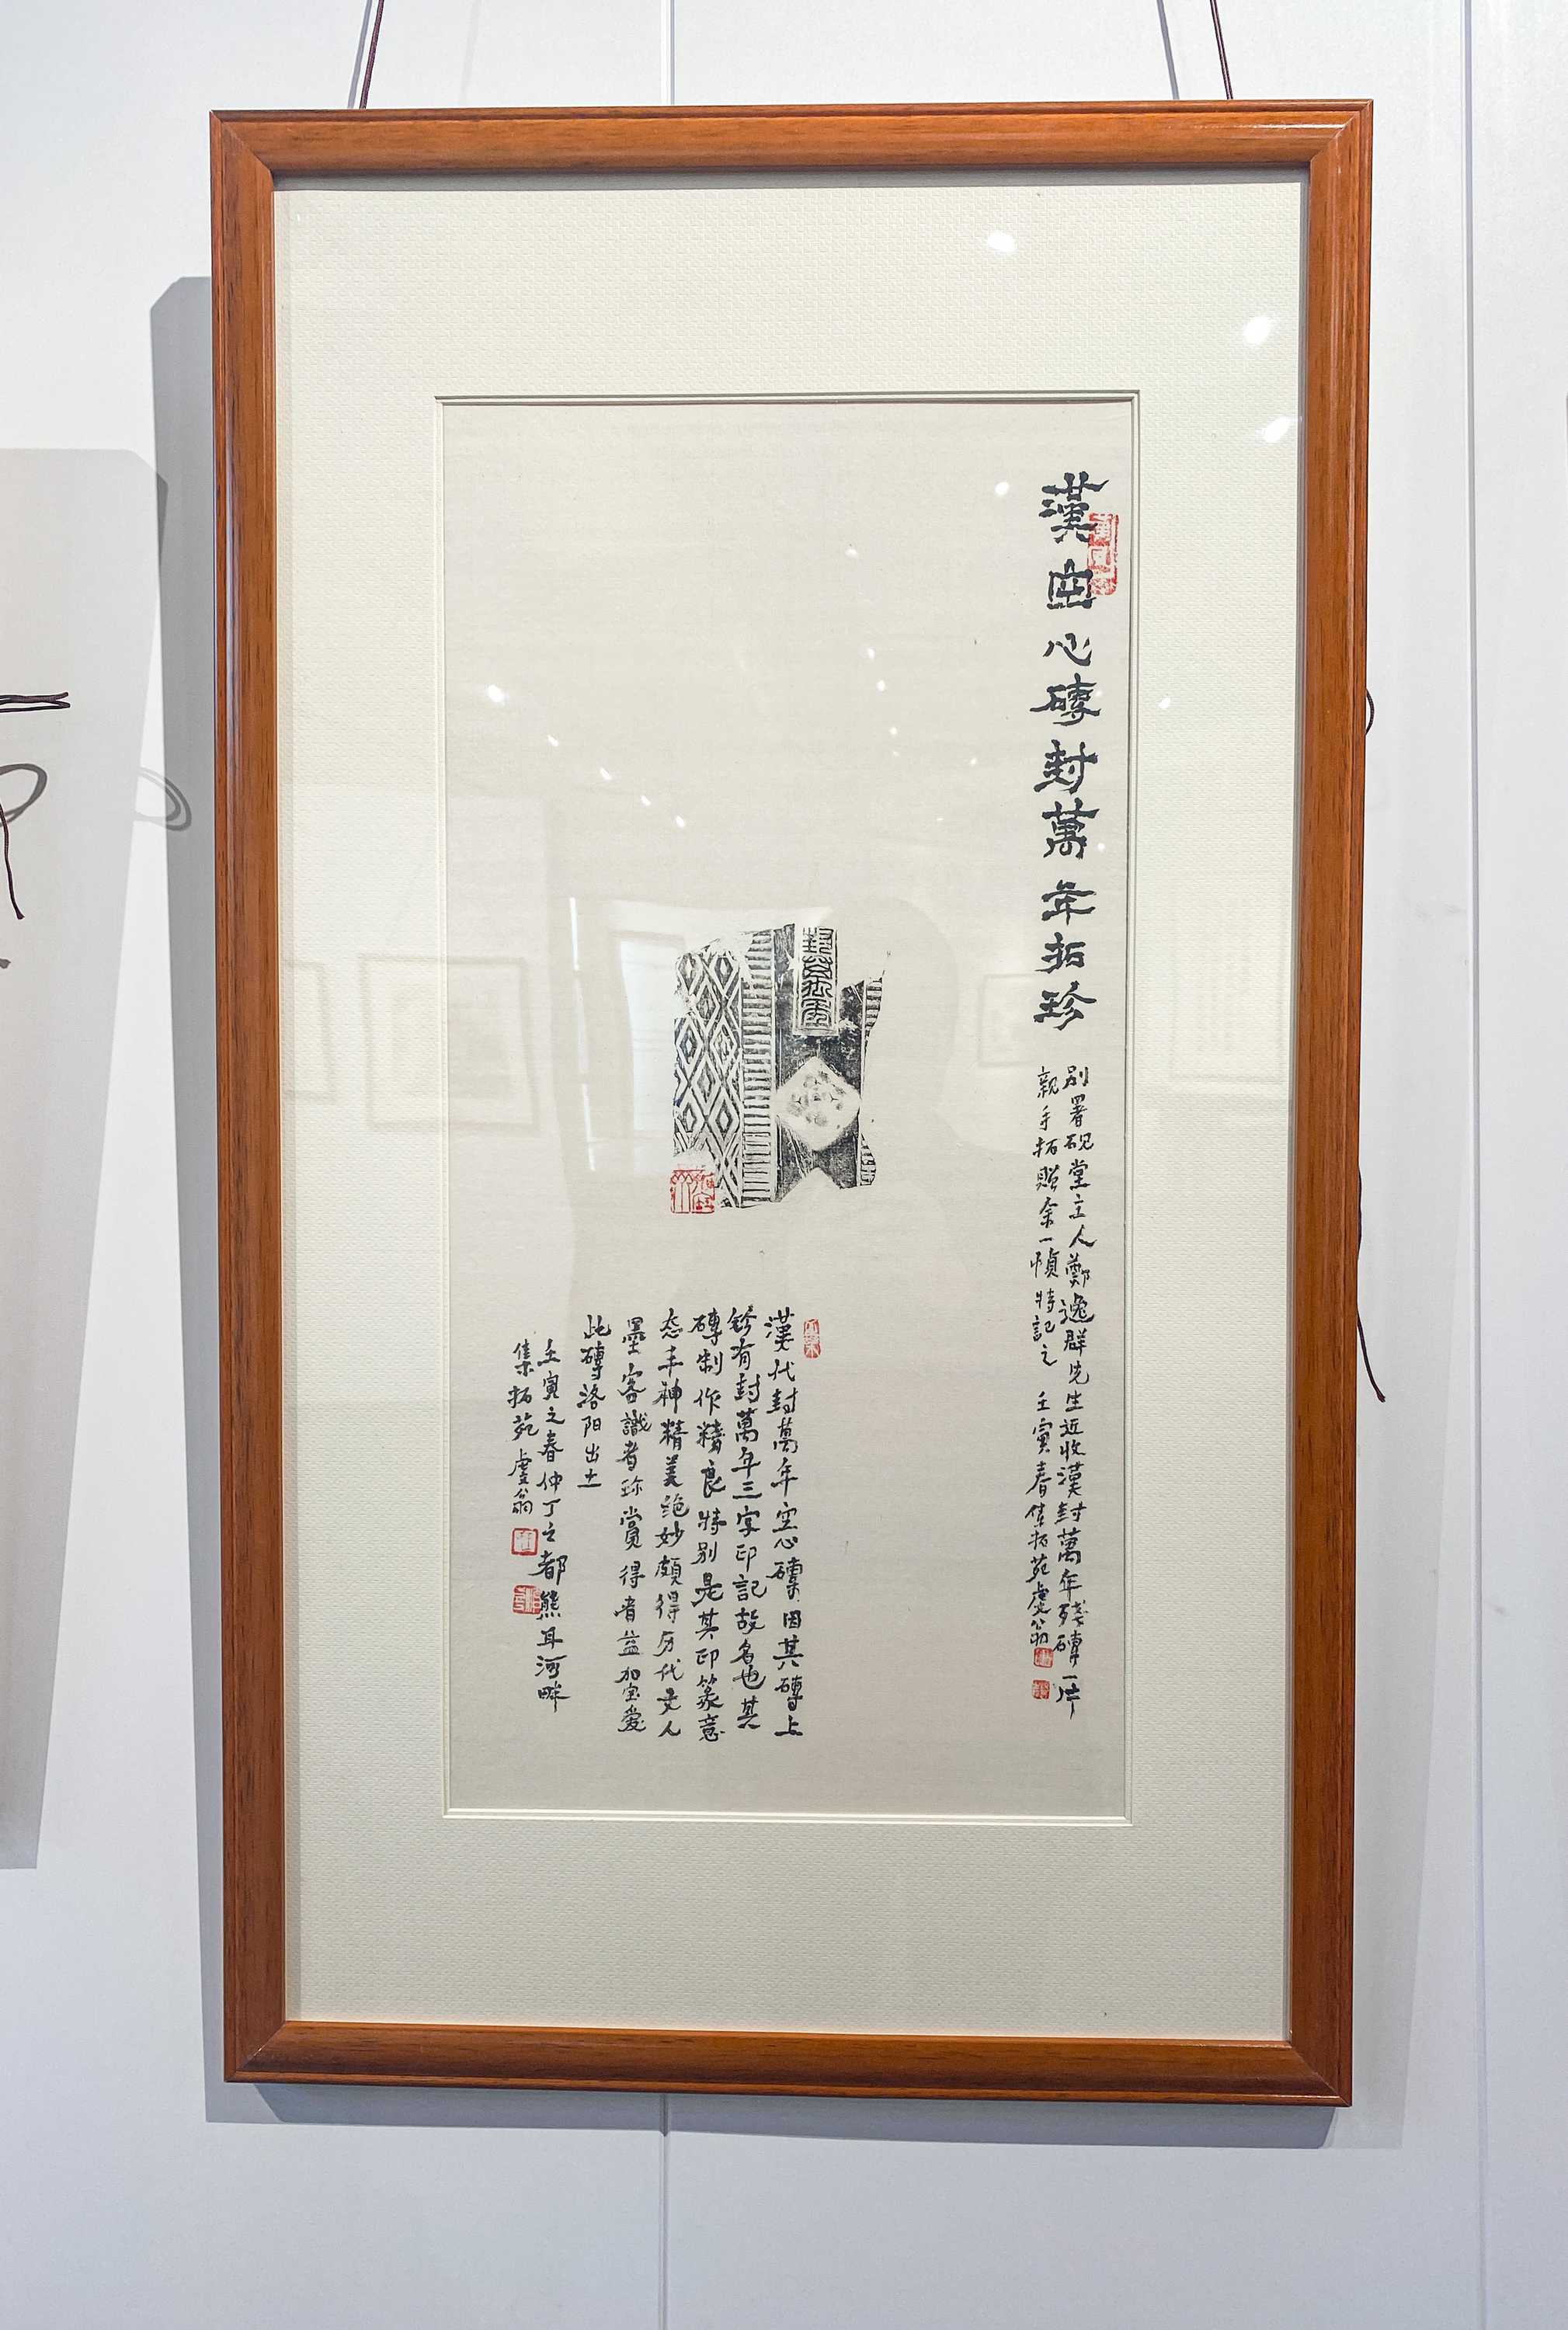 漢空心磚封萬年拓珍
別署硯堂主人鄭逸群先生近收漢封萬年殘磚一片
親手拓贈余一幀特記之 壬寅春集拓苑虔翁
漢代封萬年空心磚因其磚上
鈐有封萬年三字印記故名也其
磚制作精良特别是其印篆意
态丰神精美绝妙頗得历代文人
墨客識者珎賞得者益加宝愛
此磚洛阳出土
壬寅之春仲丁之都熊耳河畔
集拓苑虔翁